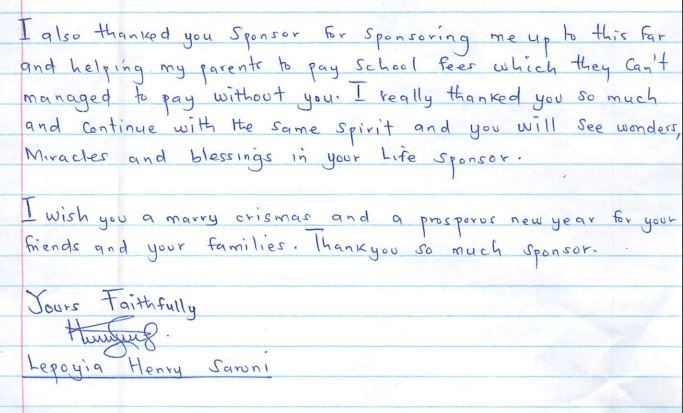 I also thanked you Sponsor for Sponsoring me up to this far
and helping my parents to pay School fees which they Can't
managed to pay without you. I really thanked you so much
and Continue with the Same Spirit and you will See wonders,
Miracles and blessings in your Life Sponsor.
I wish you a marry crismas and a prosporus new year for your
friends and your families. Thankyou so much sponsor.
Yours Faithfully
Lepoyia Henry Saroni